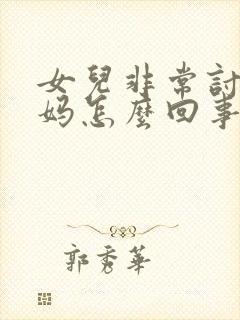 女兒非常討
妈怎麼回事
郭秀華